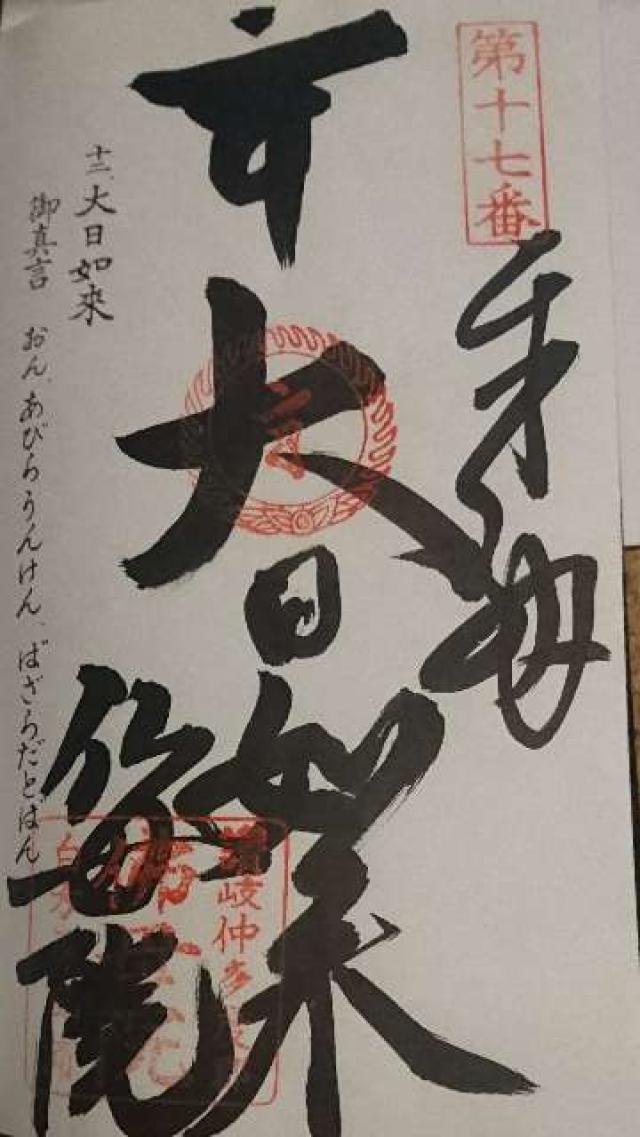 第十七番
奉納
大日如来
佛母院
讃岐仲多
十二、大日如來
御真言 おん、あびらうんけん、ばざらだとばん